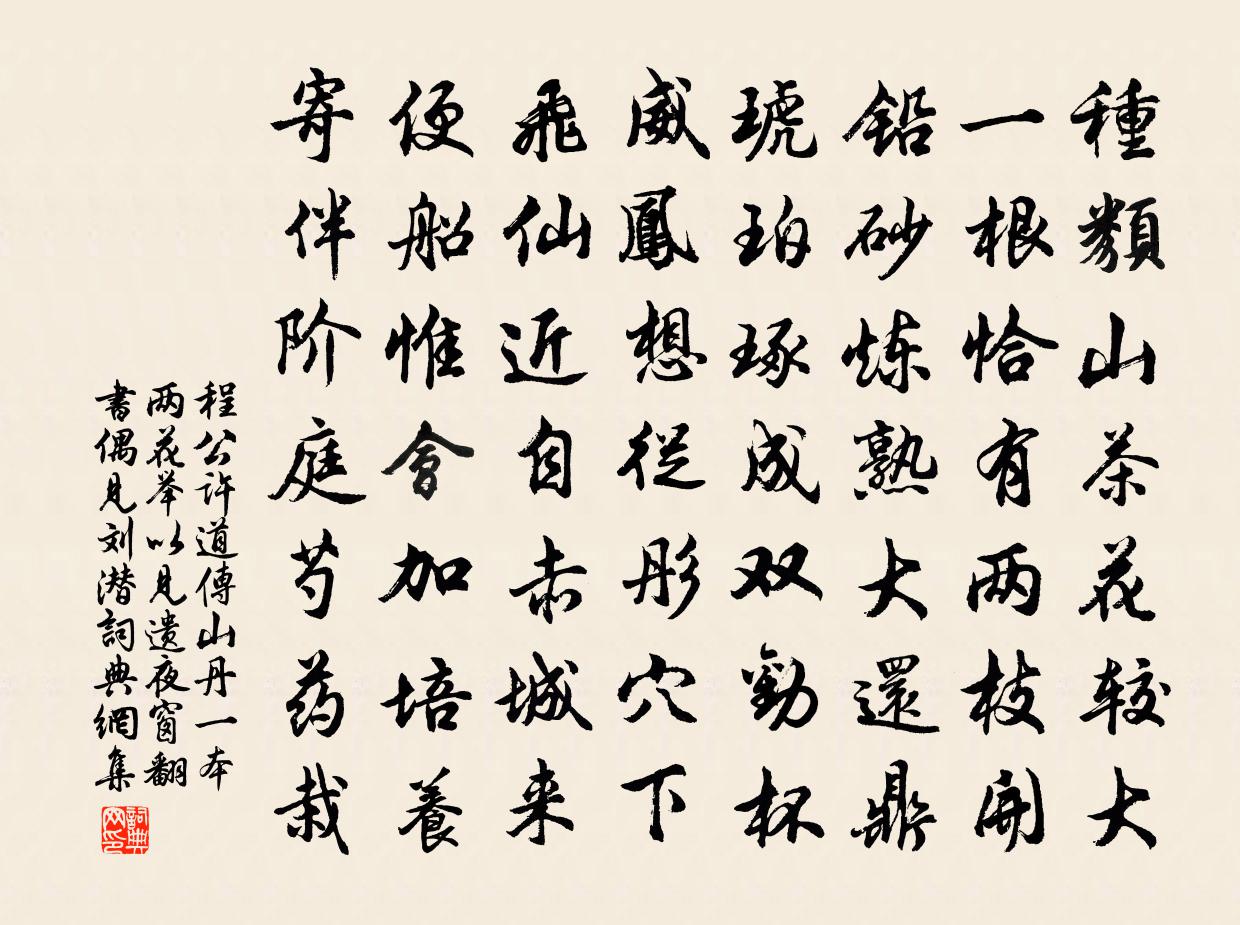 種類山茶花较大
一根恰有两枝開
铅砂炼熟大還鼎
琥珀琢成双勸杯
威鳳想從彤穴下
飛仙近自赤城来
便船惟會加培養
寄伴阶庭芍药栽
程公许道傳山丹一本
两花举以見遗夜窗翻
書偶見刘潜詞典網集
詞典
网印